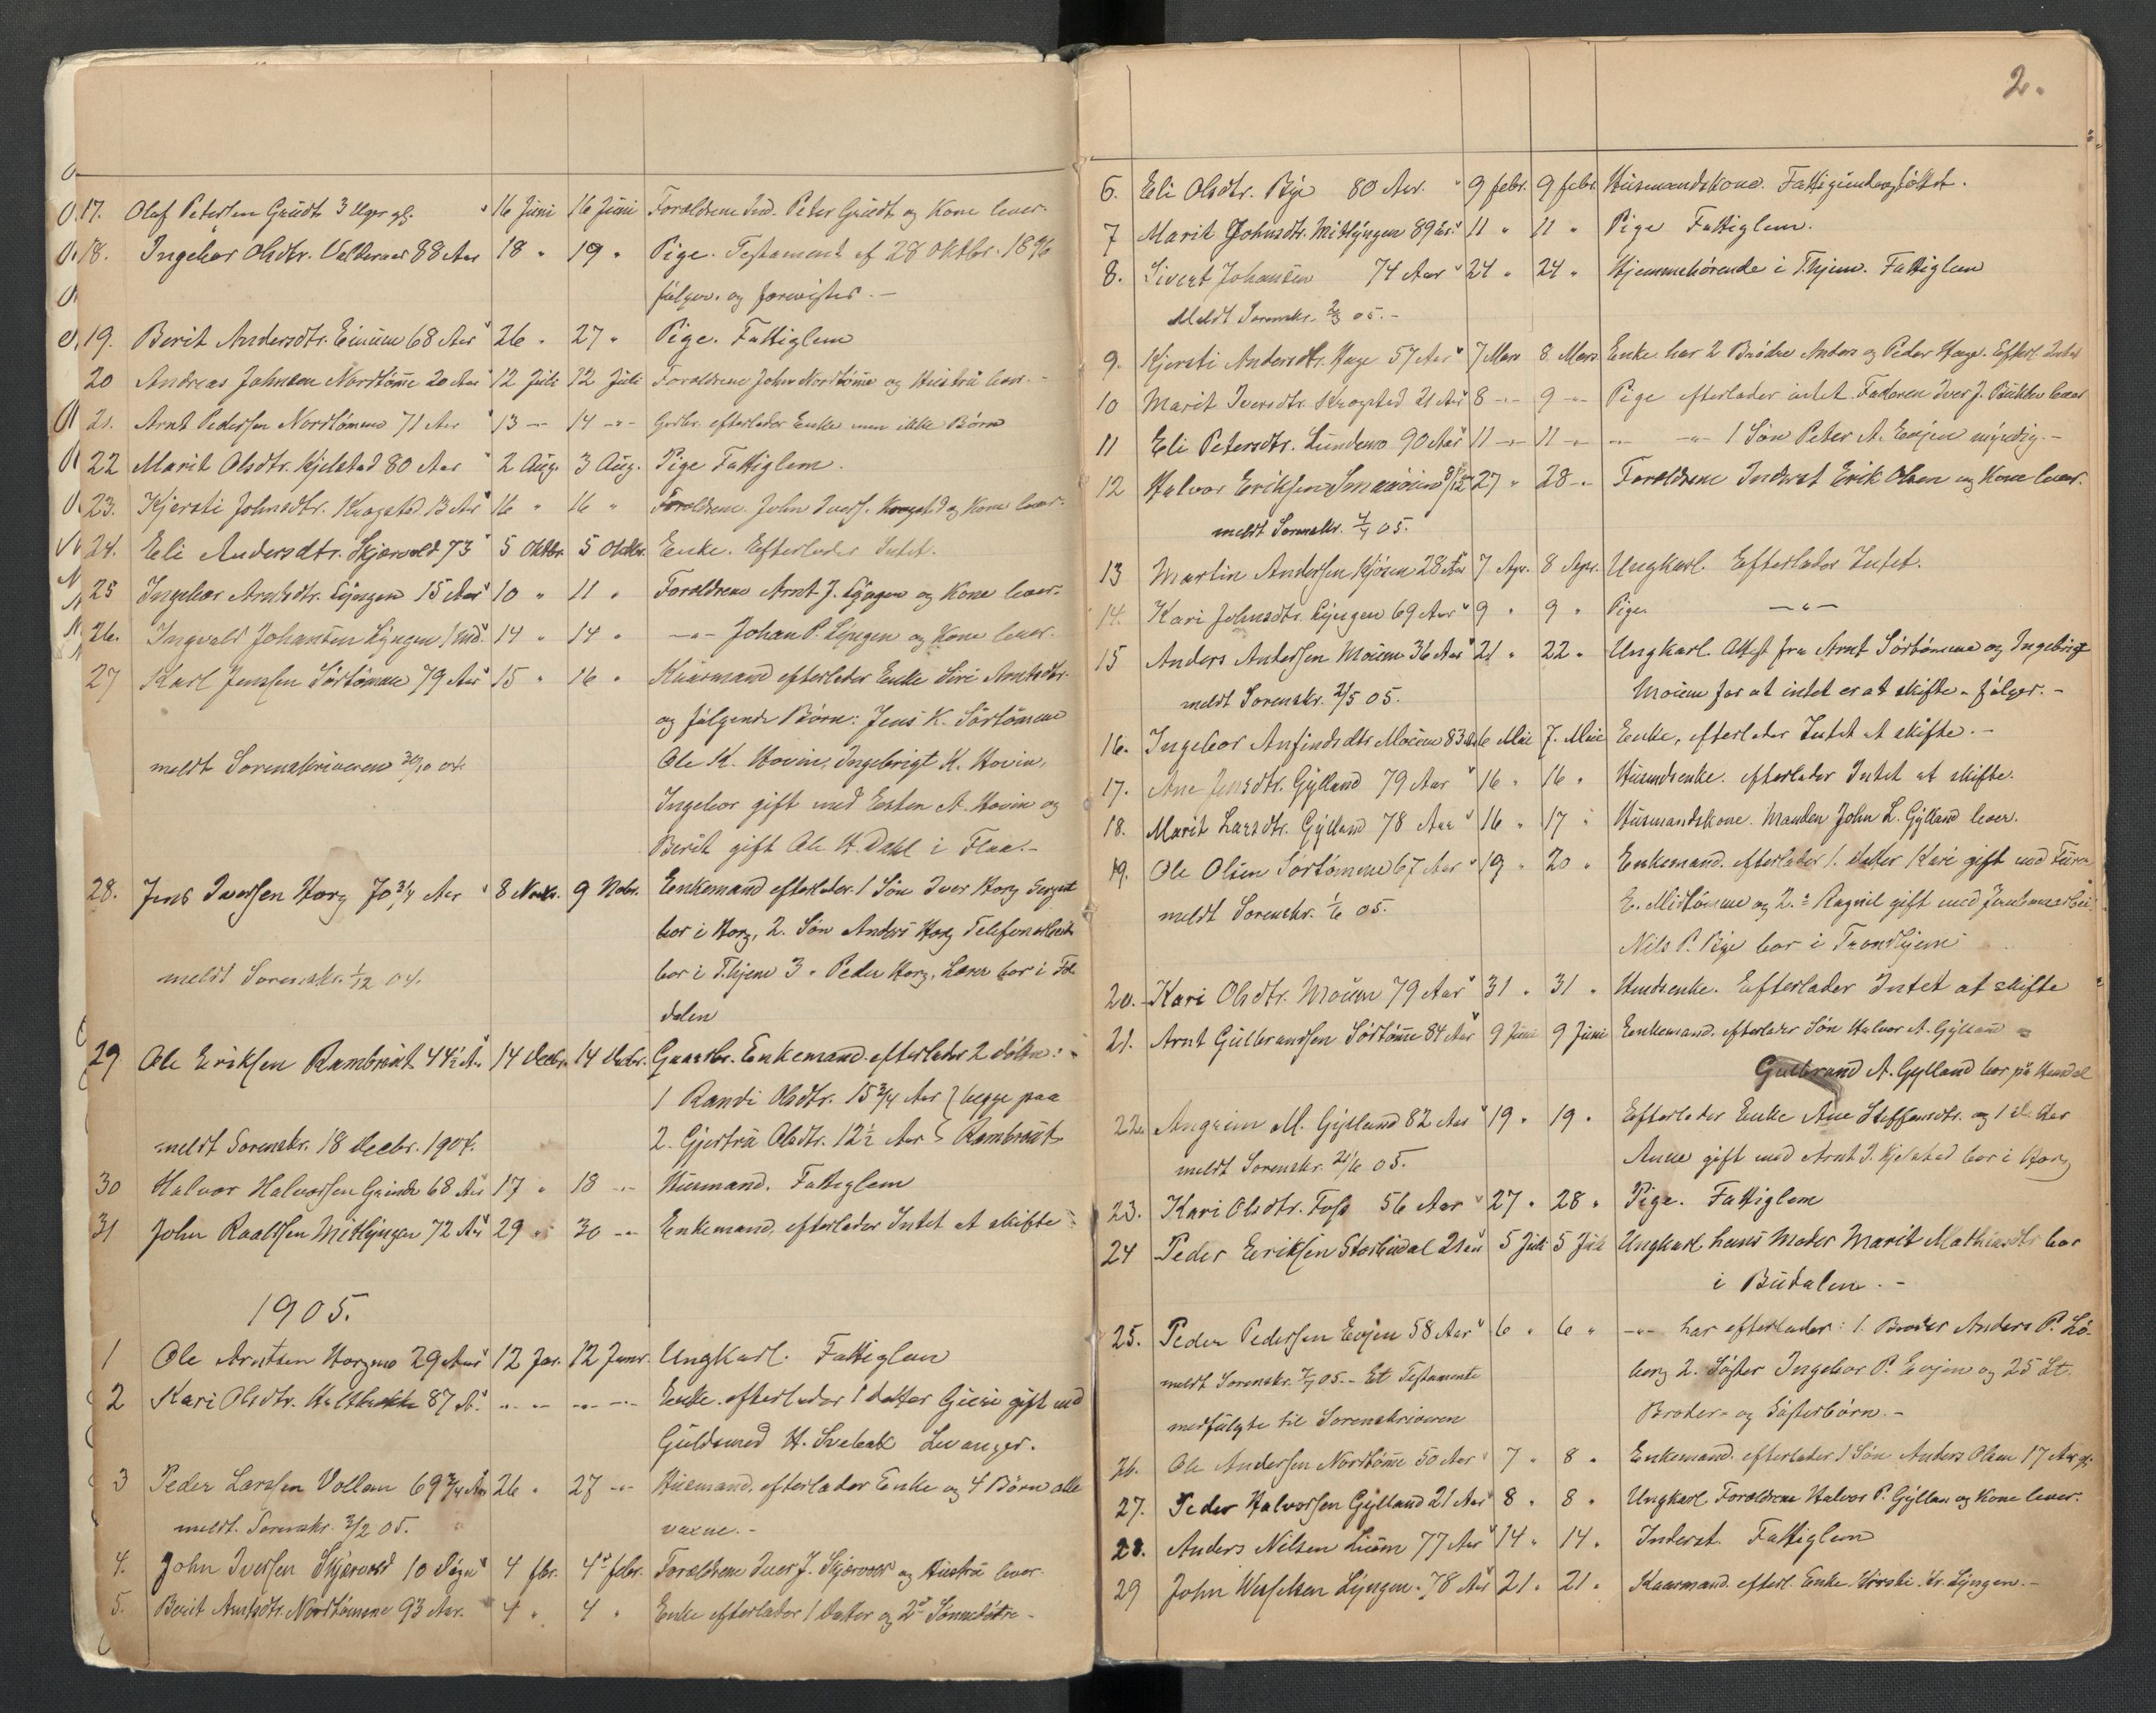 17. Olaf Petersen Grudt 3 Uger gl. 16 Juni 16 Juni Forældrene Ind. Peter Grudt og Kone lever.
18. Ingebor Olsdtr. Valderaas 88 Aar 18 " 19 " Pige. Testament af 28 Oktbr. 1896
følger og forevistes. —
19. Berit Andersdtr. 68 Aar 26 " 27 " Pige. Fattiglem
20 Andreas Johnsen Nordtømme 20 Aar 12 Juli 12 Juli Forældrene John Nordtømme og Hustru lever. -
21. Arnt Pedersen Nordtømme 71 Aar 13 -"- 14 -"- Gbr. efterlader Enke men ikke Børn
22 Marit Olsdtr. Kjelstad 80 Aar 2 Aug. 3 Aug. Pige Fattiglem.
23. Kjersti Johnsdtr. Krogstad 13 Aar 16 " 16 " Forældrene John Ivers. Krogstad og Kone lever.
24. Eli Andersdtr. Skjervold 73 5 Oktbr. 5 Oktbr. Enke. Efterlader Intet.
25 Ingebor Arntsdtr. Lyngen 15 Aar 10 " 11 " Forældrene Arnt J. Lyngen og Kone lever.
26. Ingvald Johansen Lyngen 1 Md. 14 " 14 " -"- Johan P. Lyngen og Kone lever.
27 Karl Jenssen Sørtømme 79 Aar 15 " 16 " Kaarmand efterlader Enke Siri Arntsdtr.
og følgende Børn: Jens K. Sørtømme
meldt Sorenskriveren 20/10 04. Ole K. Hovin, Ingebrigt K. Hovin,
Ingebor gift med Esten A. Hovin og
Berit gift Ole H. Dahl i Flaa. -
28. Jens Iversen Horg 70 3/4 Aar 8 Novbr. 9 Nobr. Enkemand efterlader 1 Søn Iver Horg Sergent
bor i Horg, 2. Søn Anders Horg
meldt Sorenskr. 1/12 04. bor i T.hjem 3 " Peder Horg, Lærer bor i
dalen
29 Ole Eriksen Rambraut 44 1/2 Aar 14 Decbr. 14 Decbr. Gaardbr. Enkemand efterlader 2 døttre:
1 Randi Olsdtr. 15 3/4 Aar } begge paa
meldt Sorenskr. 18 Decbr. 1904. 2. Gjertru Olsdtr. 12 1/2 Aar } Rambraut
30 Halvor Halvorsen Grinde 68 Aar 17 " 18 -"- Husmand. Fattiglem
31 John Roaldsen Mitlyngen 72 Aar 29 " 30 -"- Enkemand efterlader Intet at skifte
1905.
1 Ole Arntsen Horgmo 29 Aar 12 Jan. 12 Janr. Ungkarl. Fattiglem
2 Kari Olsdtr. Haltbakk 87 A. -"- -"- -"- -"- Enke efterlader 1 datter gift med
Guldsmed H. Levanger.
3 Peder Larsen Vollan 69 3/4 Aar 26 " 27 -"- Husmand, efterlader Enke og 4 Børn alle
meldt. Sorenskr. 3/2 05. vaxne. -
4. John Iversen Skjervold 10 Døgn 4 fbr. 4de febr. Forældrene Iver J. Skjervold og Hustru lever.
5. Berit Arntsdtr. Nordtømme 93 Aar. 4 " 4 " Enke efterlader 1 datter og 2 Sønnedøtre -
2.
6. Eli Olsdtr. Bye 80 Aar. 9 febr. 9 febr. Husmandskone. Fattigunderstøttet.
7 Marit Johnsdtr. Mitlyngen 89 Aar. 11 " 11 " Pige Fattiglem.
8. Sivert Johansen 74 Aar 24 " 24 " Hjemmehørende i T.hjem. Fattiglem
Meldt Sorenskr. 2/3 05. -
9. Kjersti Andersdtr. Hage 57 Aar 7 Mars 8 Mars Enke har 2 Brødre Anders og Peder Hage. Efterl. Intet
10 Marit Iversdtr. Krogstad 21 Aar 8 -"- 9 -"- Pige efterlader intet. Faderen Iver J. lever
11 Eli Petersdtr. Lundemo 90 Aar 11 -"- 11 -"- -"- -"- 1 Søn Peter A. Evjen myndig. -
12 Halvor Eriksen 27 " 28 -"- Forældrene Inderst Erik Olsen og Kone lever.
meldt Sorenskr. 4/4 05.
13 Martin Andersen Kjøsen 28 Aar 7 Apr. 8 Apr. Ungkarl. Efterlader Intet.
14. Kari Johnsdtr. Lyngen 69 Aar 9 " 9 " Pige -"-
15 Anders Andersen Moum 36 Aar 21 " 22 " Ungkarl. Attest fra Arnt Sørtømme og Ingebrigt
meldt Sorenskr. 2/5 05. Moum for at intet er at skifte - følger. -
16. Ingebor Anfindsdtr. Moum 83 Aar 6 Mai 7. Mai Enke, efterlader Intet at skifte. -
17. Ane Jensdtr. Gylland 79 Aar 16 " 16 " Husmdsenke. efterlader Intet at skifte.
18. Marit Larsdtr. Gylland 78 Aar 16 " 17 " Husmandskone. Manden John L. Gylland lever.
19. Ole Olsen Sørtømme 67 Aar 19 " 20 " Enkemand. efterlader 1. datter Kari gift med
meldt Sorenskr. 1/6 05. E. Midtømme og 2. " Ragnil gift med
Nils P. Bye bor i Trondhjem
20. Kari Olsdtr. Moum 79 Aar 31 " 31 " Hmdsenke. Efterlader Intet at skifte
21. Arnt Gulbrandsen Sørtømme 84 Aar 9 Juni 9 Juni Enkemand. efterlader Søn Halvor A. Gylland "
Gulbrand A. Gylland bor på
22. Angrim M. Gylland 82 Aar 19 " 19 " Efterlader Enke Ane Steffensdtr. og 1 datter
meldt Sorenskr. 21/6 05. Anne gift med Arnt J. Kjelstad bor i Horg
23. Kari Olsdtr. Foss 56 Aar 27 " 28 " Pige. Fattiglem
24 Peder Eriksen Storbudal 21 5 Juli 5 Juli Ungkarl hans Moder Marit Mathiasdtr. bor
i Budalen. -
25. Peder Pedersen Evjen 58 Aar 6 " 6 " -"- har efterlader: 1. Broder Anders P. Lø-
meldt Sorenskr. 7/7 05. - Et Testamente berg 2. Søster Ingebor P. Evjen og 25 St.
medfulgte til Sorenskriveren Broder- og Søsterbørn. -
26. Ole Andersen Nordtømme 50 Aar 7 " 8 " Enkemand. efterlader 1 Søn Anders Olsen 17 Aar gl.
27. Peder Halvorsen Gylland 21 Aar 8 " 8 " Ungkarl. Forældrene Halvor P. Gylland og Kone lever.
28. Anders Nilsen 77 Aar 14 " 14 " Inderst. Fattiglem
29 John Lyngen. 78 Aar 21 " 21 " Kaarmand. efterl. Enke Lyngen. -